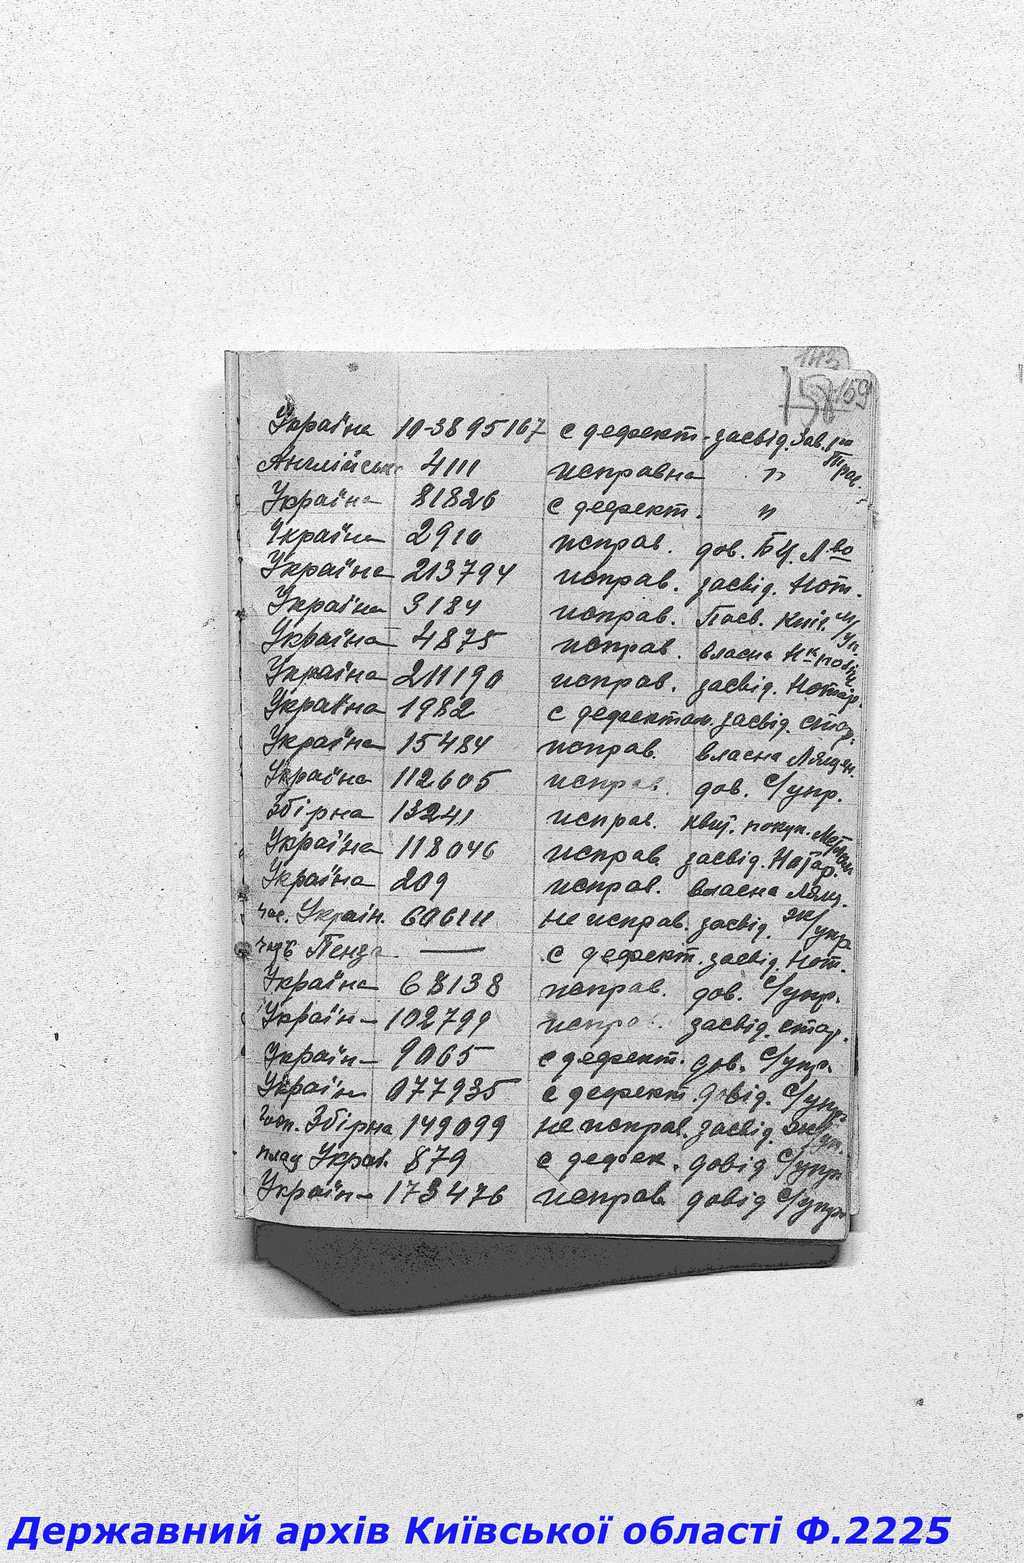 143
158 159
Україна 10-3895167 с дефект. засвід. Зав.
Англійськ 4111 исправна "
Україна 81826 с дефект. "
Україна 2910 исправ. дов. БЦ.
Україна 213794 исправ. засвід. Нот.
Україна 3184 исправ.
Україна 4875 исправ. власна
Україна 211190 исправ. засвід. Нотар.
Україна 1982 с дефектом. засвід. стар.
Україна 15484 исправ. власна
Україна 112605 исправ. дов. С/упр.
Збірна 13241 исправ. квит. покуп.
Україна 118046 исправ засвід. Нотар.
Україна 209 исправ. власна
Україн. 606111 не исправ. засвід. упр
Пенза — с дефект. засвід. Нот.
Україна 68138 исправ. дов. С/упр.
Україн- 102799 исправ. засвід. стар.
Україн- 9065 с дефект. дов. С/упр.
Україн 077935 с дефект. довід. С/упр.
Збірна 149099 не исправ. засвід.
Украв. 879 с дефек. довід С/упр
Україн- 173476 исправ довід С/упр
Державний архів Київської області Ф.2225